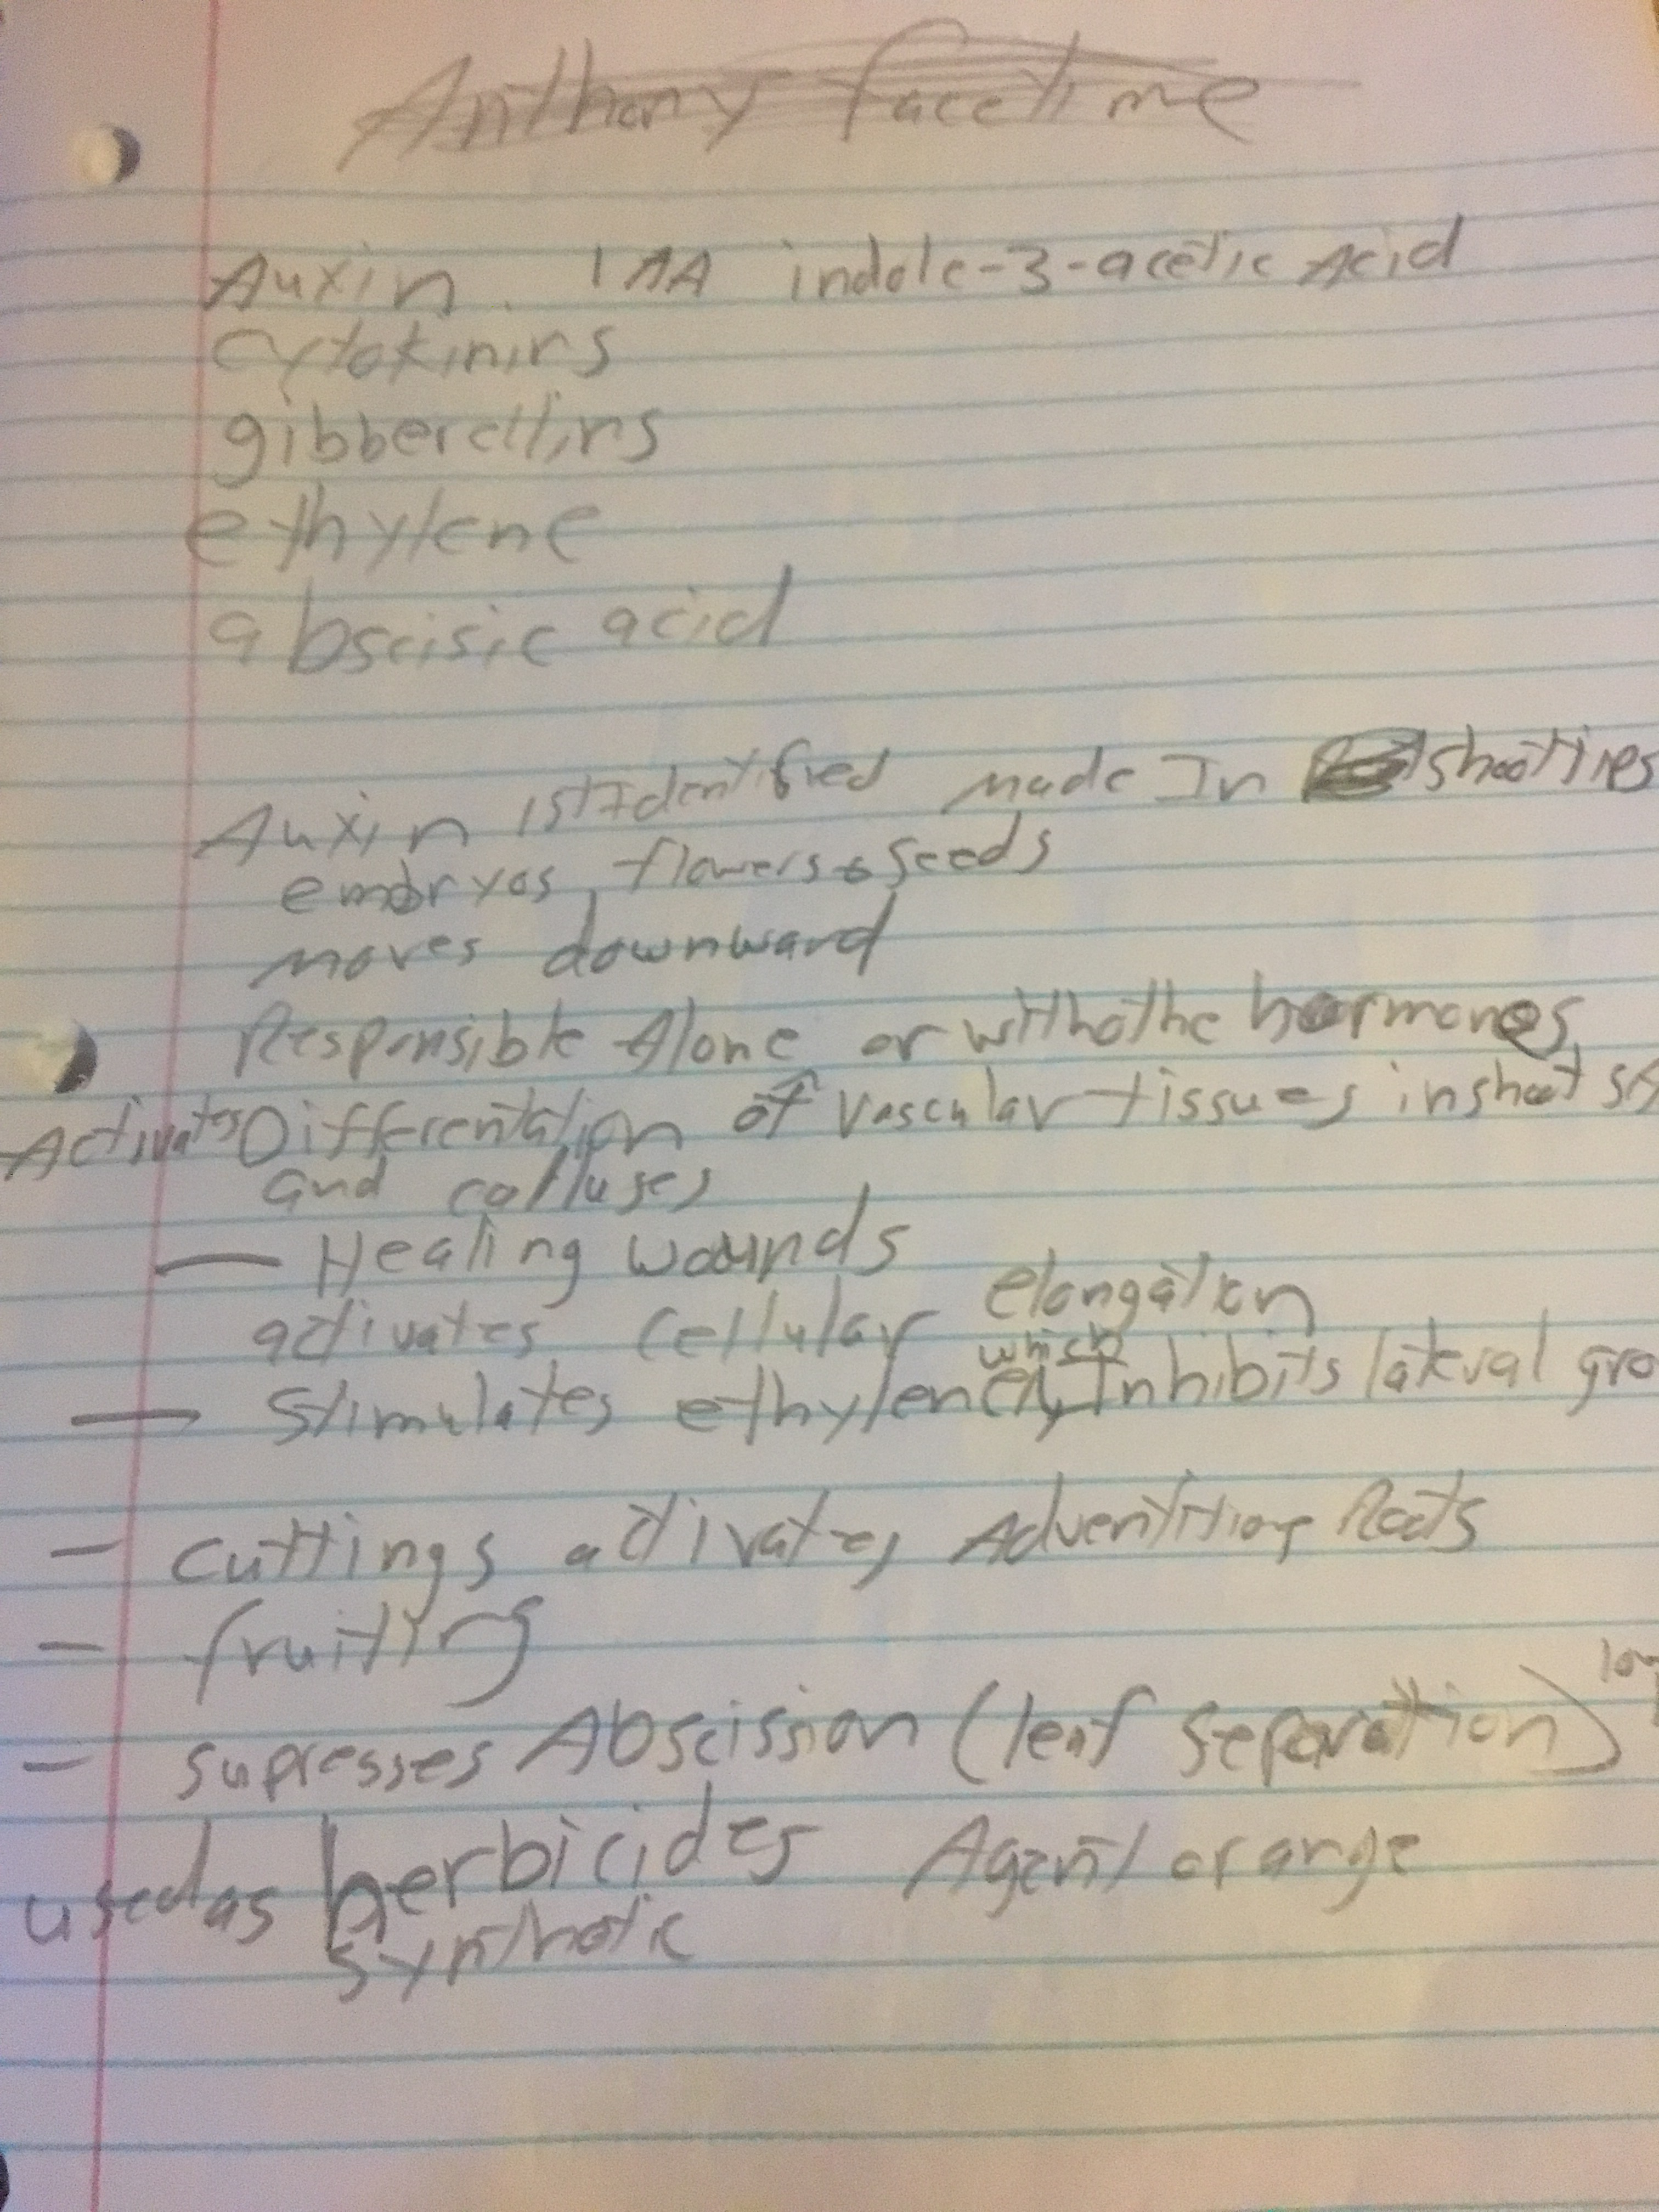 Anthony facetime
Auxin. IAA indole-3-acetic Acid
cytokinins
gibberellins
ethylene
abscisic acid
Auxin 1st Identified made In shoot tips
embryos, flowers & seeds
moves downward
Responsible Alone or with othe hormones
Activates Differentation of vascular tissues in shoot
and calluses
— Healing wounds
activates cellular elongation
— Stimulates ethylene which Inhibits lateral gro
- cuttings activates Adventitious Roots
- fruiting
- supresses Abscission (leaf separation)
used as herbicides Agent orange
synthetic